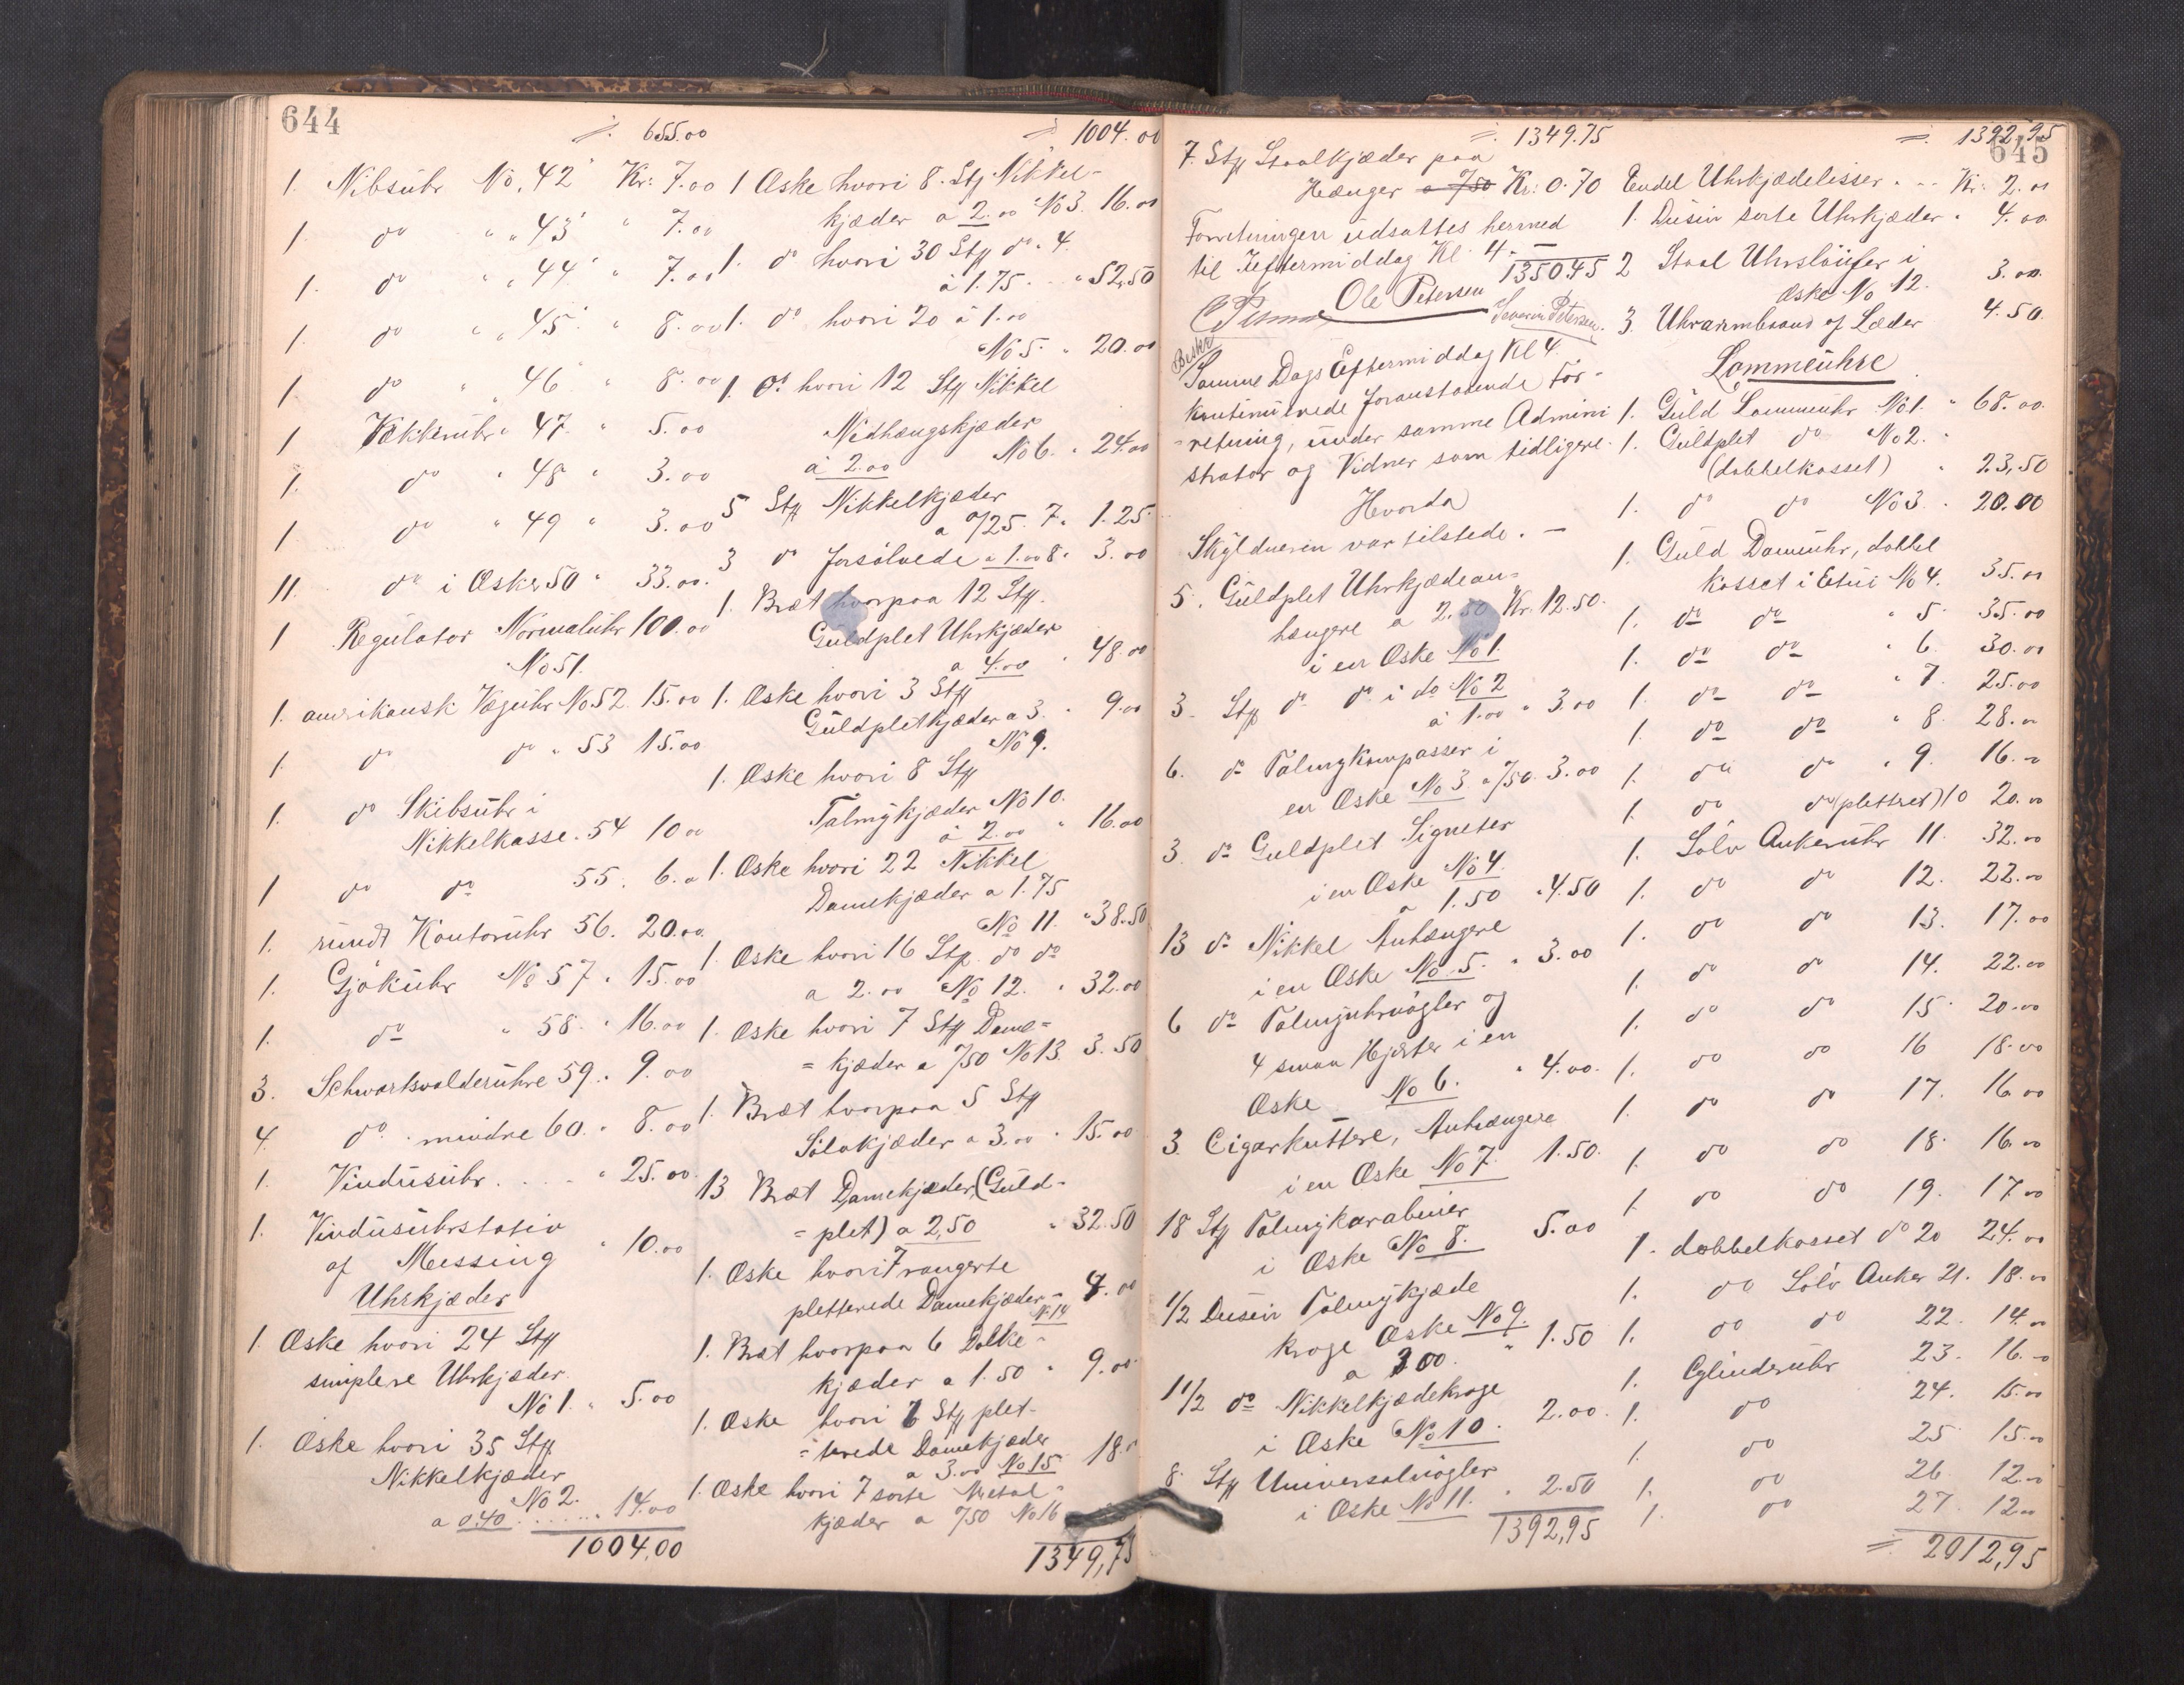 644
〃. 655.00
1. Nibsühr No. 42 Kr: 7.00
1. do 〃 〃 43 〃 7.00
1. do 〃 〃 44 〃 7.00
1. do 〃 〃 45 〃 8.00
1 do 〃 46 〃 8.00
1 Vækkerühr 〃 47 〃 5.00
1. do 〃 48 〃 3.00
1 do 〃 49 〃 3.00
11. do i Æsker 50 〃 33.00.
1 Regülator Normalühr 100.00
No 51.
1. amrikansk Vægühr No 52. 15.00
1. do do 〃 53 15.00
1. do Skibsühr i
Nikkelkasse. 54 10 00
1 do do 55. 6.00
1. ründt Kontorühr 56. 20.00.
1. Gjökühr No 57 〃 15.00
1. do 〃 58. 〃 16.00
3. Schwartsvalderühre 59. 〃 9.00
4. do. mindre 60. 〃 8.00
1. Vindüsühr . . . . 〃 25.00.
1. Vindüsührstativ
af Messing 〃 10.00
Uhrkjæder
1. Æske hvori 24 Stk
simplere Uhrkjæder.
No 1. 〃 5.00
1. Æske hvori 35 Stk
Nikkelkjæder
No 2.
a 0.40 . . . . . . 〃 14.00
1004,00
〃 1004.00
1 Æske hvori 8. Stk Nikkel-
kjæder a 2.00 No 3. 16.00
1. do hvori 30 Stk do 〃 4.
à 1.75. 〃 52,50
1. do hvori 20 à 1.00
No 5. 〃 20.00
1. do hvori 12 Stk Nikkel
Nedhængskjæder
à 2.00 No 6. 〃 24.00
5 Stk Nikkelkjæder
a 0/25. 7 〃 1.25.
3 do forsölvede a 1.00 8 〃 3.00
1. Bræt hvorpaa 12 Stk.
Güldplet Uhrkjæder
a 4.00 〃 48.00
1. Æske hvori 3 Stk
Güldpletkjæder a 3. 〃 9.00
No 9.
1. Æske hvori 8 Stk
Talmykjæder No 10.
à 2.00 〃 16.00
1. Æske hvori 22 Nikkel
Damekjæder a 1.75
No 11. 〃 38.50
1. Æske hvori 16 Stk. do do
a 2.00 No 12. 〃 32.00
1. Æske hvori 7 Stk Dame=
= kjæder a 0/50 No 13. 3.50
1. Bræt hvorpaa 5 Stk
Sölvkjæder a 3.00 〃 15.00
13 Bræt Damekjæder (Güld-
= plet) a 2,50 〃 32.50
1. Æske hvori 7 rangerte
pletterede Damekjæder 〃 4.00
No 14
1. Bræt hvorpaa 6 Dolke-
kjæder a 1.50 〃 9.00
1. Æske hvori 6 Stk plet-
= terede Damekjæder
a 3.00 No 15 18.0
1. Æske hvori 7 sorte Metal-
kjæder a 0/50 No 16
1349,75
〃. 1349.75
7. Stk Staalkjæder paa
Hænger a 0/50 Kr: 0.70
Forretningen udsattes hermed
til Eftermiddag Kl. 4. —
1350.45
Ole Petersen
Severin Petersen.
Beskr
Samme Dags Eftermiddag Kl 4.
kontinuerede foranstaaende For-
= retning, ünder samme Admini
strator og Vidner som tidligere.
Hvorda
Skyldneren var tilstede. —
5. Güldplet Uhrkjædean=
hængere a 2.50 Kr. 12.50.
i en Æske No 1.
3. Stk do do i do No 2
à 1.00 〃 3.00
6. do Talmykompasser i
en Æske No 3. a 0/50. 3.00
3. do Guldplet Signeter
i en Æske No 4.
a 1.50 〃 4.50
13 do Nikkel Anhængere
i en Æske No. 5. 〃 3.00
6 do Talmyuhrnögler og
4 smaa Hjerter i en
Æske No 6. 〃 4.00.
3. Cigarkuttere, Anhængere
i en Æske No 7. 1.50.
18 Stk Talmykarabiner
i Æske No 8. 5.00
1/2 Düsin Talmykjæde
kroge Æske No 9.
a 3.00. 〃 1.50
1 1/2 do Nikkelkjædekroge
i Æske No 10. 2.00.
8. Stk Universalnögler
i Æske No 11. 〃 2.50
1392,95
645
〃. 1392,95
Endel Uhrkjædelisser . . . Kr: 2.00
1. Düsin sorte Uhrkjæder 〃 4.00.
2 Staal Uhrslöüfer i
Æske No 12. 3.00.
3. Uhrarmbaand af Læder 4.50.
Lommeühre
1. Güld Lommeühr No 1. 〃 68.00.
1. Güldplet do No 2. 〃
(dobbelkasset) 〃 23,50
1. do do No 3. 〃 20.00
1. Güld Dameühr, dobbel
kasset i Etüi No 4. 35.00
1. do do 〃 5. 35.00
1. do do 〃 6. 30.00
1. do do 〃 7. 25.00
1. do do 〃 8. 28.00
1. do do 〃 9. 16.00
1. do do (plettret) 10 20.00
1. Sölv Ankerühr 11. 32.00
1. do do 12. 22.00
1. do do 13. 17.00
1. do do 14. 22.00
1. do do 15. 20.00
1. do do 16 18.00
1. do do 17. 16.00
1. do do 18. 16.00
1. do do 19. 17.00
1. dobbelkasset do 20 24.00
1. do Sölv Anker 21. 18.00
1. do do 22. 14.00
1. Cylinderühr 23. 16.00
1. do 24. 15.00
1. do 25 15.00
1. do 26 12.00
1. do 27. 12.00
〃. 2012,95